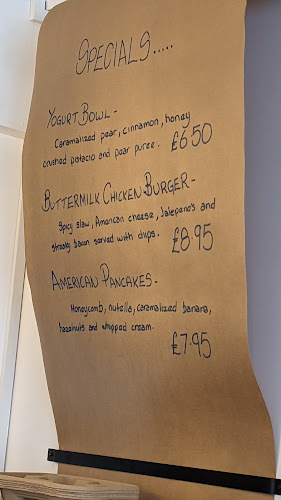 SPECIALS.....
YOGURT BOWL -
Caramalized pear, cinnamon, honey
crushed pistacio and pear puree. £6.50
BUTTERMILK CHICKEN BURGER -
Spicy slaw, American cheese, Jalepeno's and
streaky bacon served with chips. £8.95
AMERICAN PANCAKES -
Honeycomb, nutella, caramalized banana,
hazelnuts and whipped cream.
£7.95